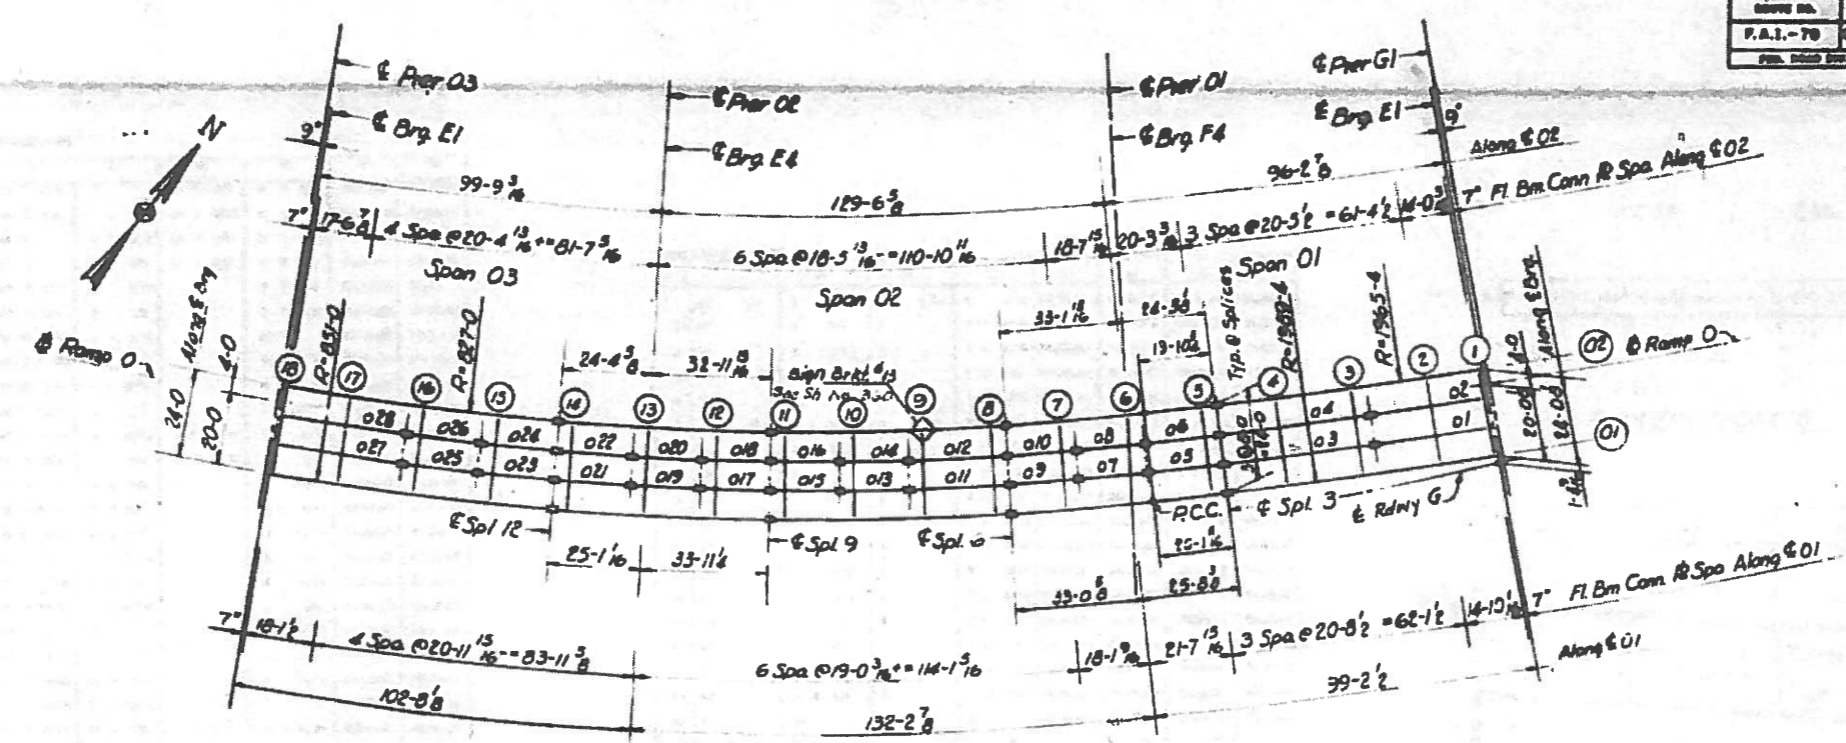 F.A.I.-70
℄ Pier 03
℄ Brg. E1
℄ Pier 02
℄ Brg. E4
℄ Pier 01
℄ Brg. F4
℄ Pier G1
℄ Brg. E1
N
9"
9"
Along ℄ 02
99-9 3/16
129-6 5/8
96-2 7/8
7" Fl. Bm. Conn. ℞ Spa. Along ℄ 02
7"
17-6 7/8
4 Spa @ 20-4 13/16+ = 81-7 5/16
6 Spa @ 18-5 13/16- = 110-10 11/16
18-7 15/16
20-3 3/16
3 Spa @ 20-5 1/2 = 61-4 1/2
Span 03
Span 02
Span 01
Along ℄ Brg
℄ Ramp O
4-0
24-0
20-0
R=831-0
R=827-0
24-4 5/8
32-11 15/16
Sign Brkt
19-10
Typ. ℄ Splices
R=1965-4
4-0
Along ℄ Brg.
02
℄ Ramp O
18
17
16
15
14
13
12
11
10
9
8
7
6
5
4
3
2
1
028
026
024
022
020
018
016
014
012
010
08
06
04
02
027
025
023
021
019
017
015
013
011
09
07
05
03
01
01
℄ Spl. 12
℄ Spl. 9
℄ Spl. 6
P.C.C.
℄ Spl. 3
℄ Rdwy G
25-1 1/16
33-11 1/4
33-0 5/8
25-8 3/8
7"
18-1 1/2
4 Spa @ 20-11 15/16- = 83-11 5/8
6 Spa @ 19-0 3/16+ = 114-1 5/16
18-1 9/16
21-7 15/16
3 Spa @ 20-8 1/2 = 62-1 1/2
7" Fl. Bm. Conn. ℞ Spa Along ℄ 01
102-8 1/8
132-2 7/8
99-2 1/2
Along ℄ 01